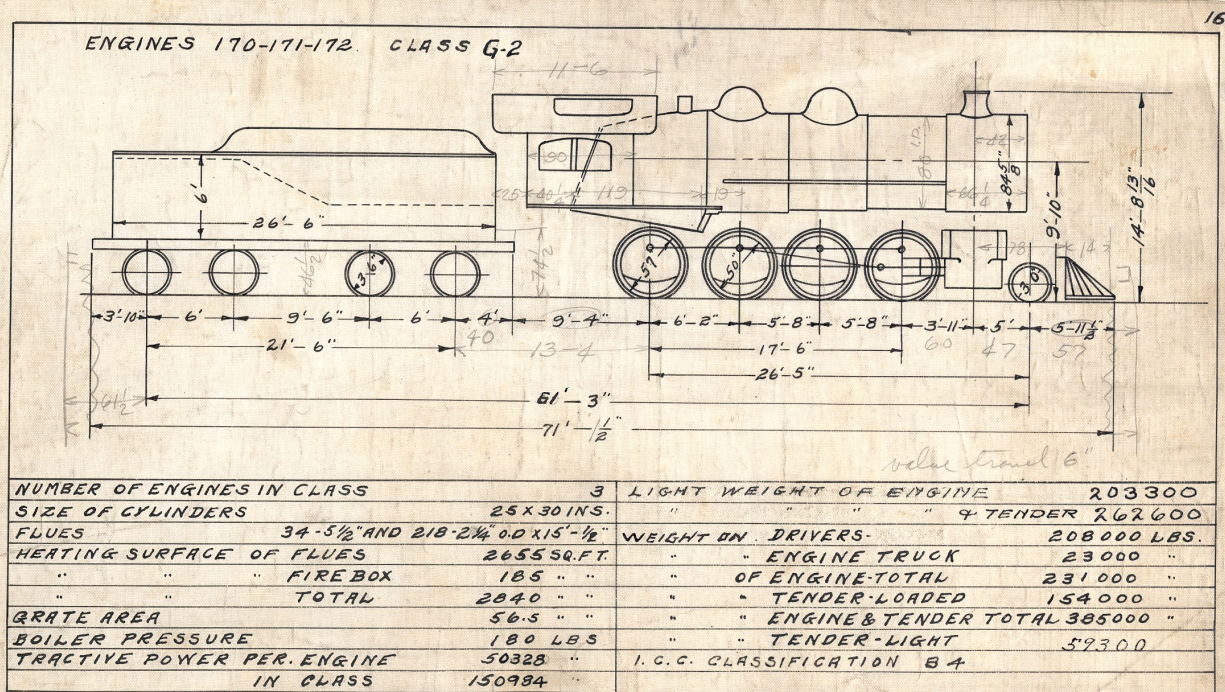 16
ENGINES 170-171-172. CLASS G-2
11-6
90
86 I.D.
42
84 5/8"
6'
25 40 1/2 119 19 66 1/4
9'-10"
14'-8 13/16"
26'-6"
78 14
46 1/2
74 1/2
3'-6"
57"
50"
3'0"
3'-10" 6' 9'-6" 6' 4' 9'-4" 6'-2" 5'-8" 5'-8" 3'-11" 5' 5-11 1/2"
21'-6" 40 13-4 17'-6" 60 47 57
26'-5"
61 1/2 61'-3"
71'-1/2"
valve travel 6"
NUMBER OF ENGINES IN CLASS 3
SIZE OF CYLINDERS 25 X 30 INS.
FLUES 34-5 1/2" AND 218-2 1/4" O.D X 15'-1/2"
HEATING SURFACE OF FLUES 2655 SQ.FT.
" " " FIREBOX 185 " "
" " TOTAL 2840 " "
GRATE AREA 56.5 " "
BOILER PRESSURE 180 LBS
TRACTIVE POWER PER. ENGINE 50328 "
IN CLASS 150984 "
LIGHT WEIGHT OF ENGINE 203300
" " " " & TENDER 262600
WEIGHT ON DRIVERS- 208000 LBS.
" " ENGINE TRUCK 23000 "
" OF ENGINE-TOTAL 231000 "
" " TENDER-LOADED 154000 "
" " ENGINE & TENDER TOTAL 385000 "
" " TENDER-LIGHT 59300
I.C.C. CLASSIFICATION B 4